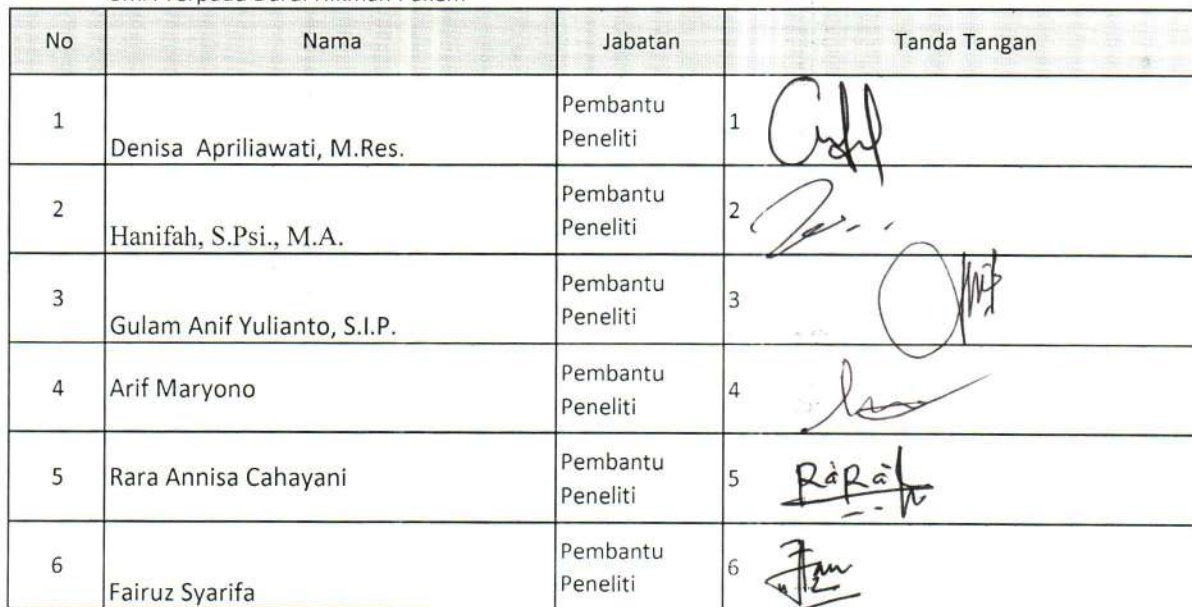 No Nama Jabatan Tanda Tangan
1 Denisa Apriliawati, M.Res. Pembantu Peneliti 1
2 Hanifah, S.Psi., M.A. Pembantu Peneliti 2
3 Gulam Anif Yulianto, S.I.P. Pembantu Peneliti 3
4 Arif Maryono Pembantu Peneliti 4
5 Rara Annisa Cahayani Pembantu Peneliti 5 Rara
6 Fairuz Syarifa Pembantu Peneliti 6